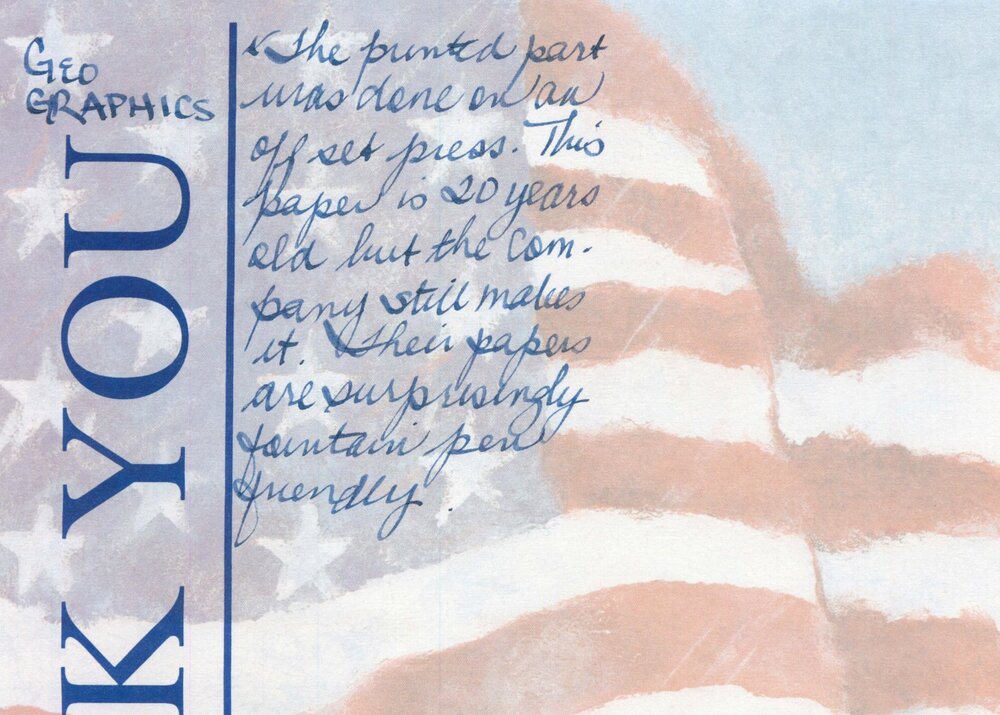 GEO
GRAPHICS
K YOU
↙ The printed part
was done on an
off set press. This
paper is 20 years
old but the com-
pany still makes
it. Their papers
are surprisingly
fountain pen
friendly.